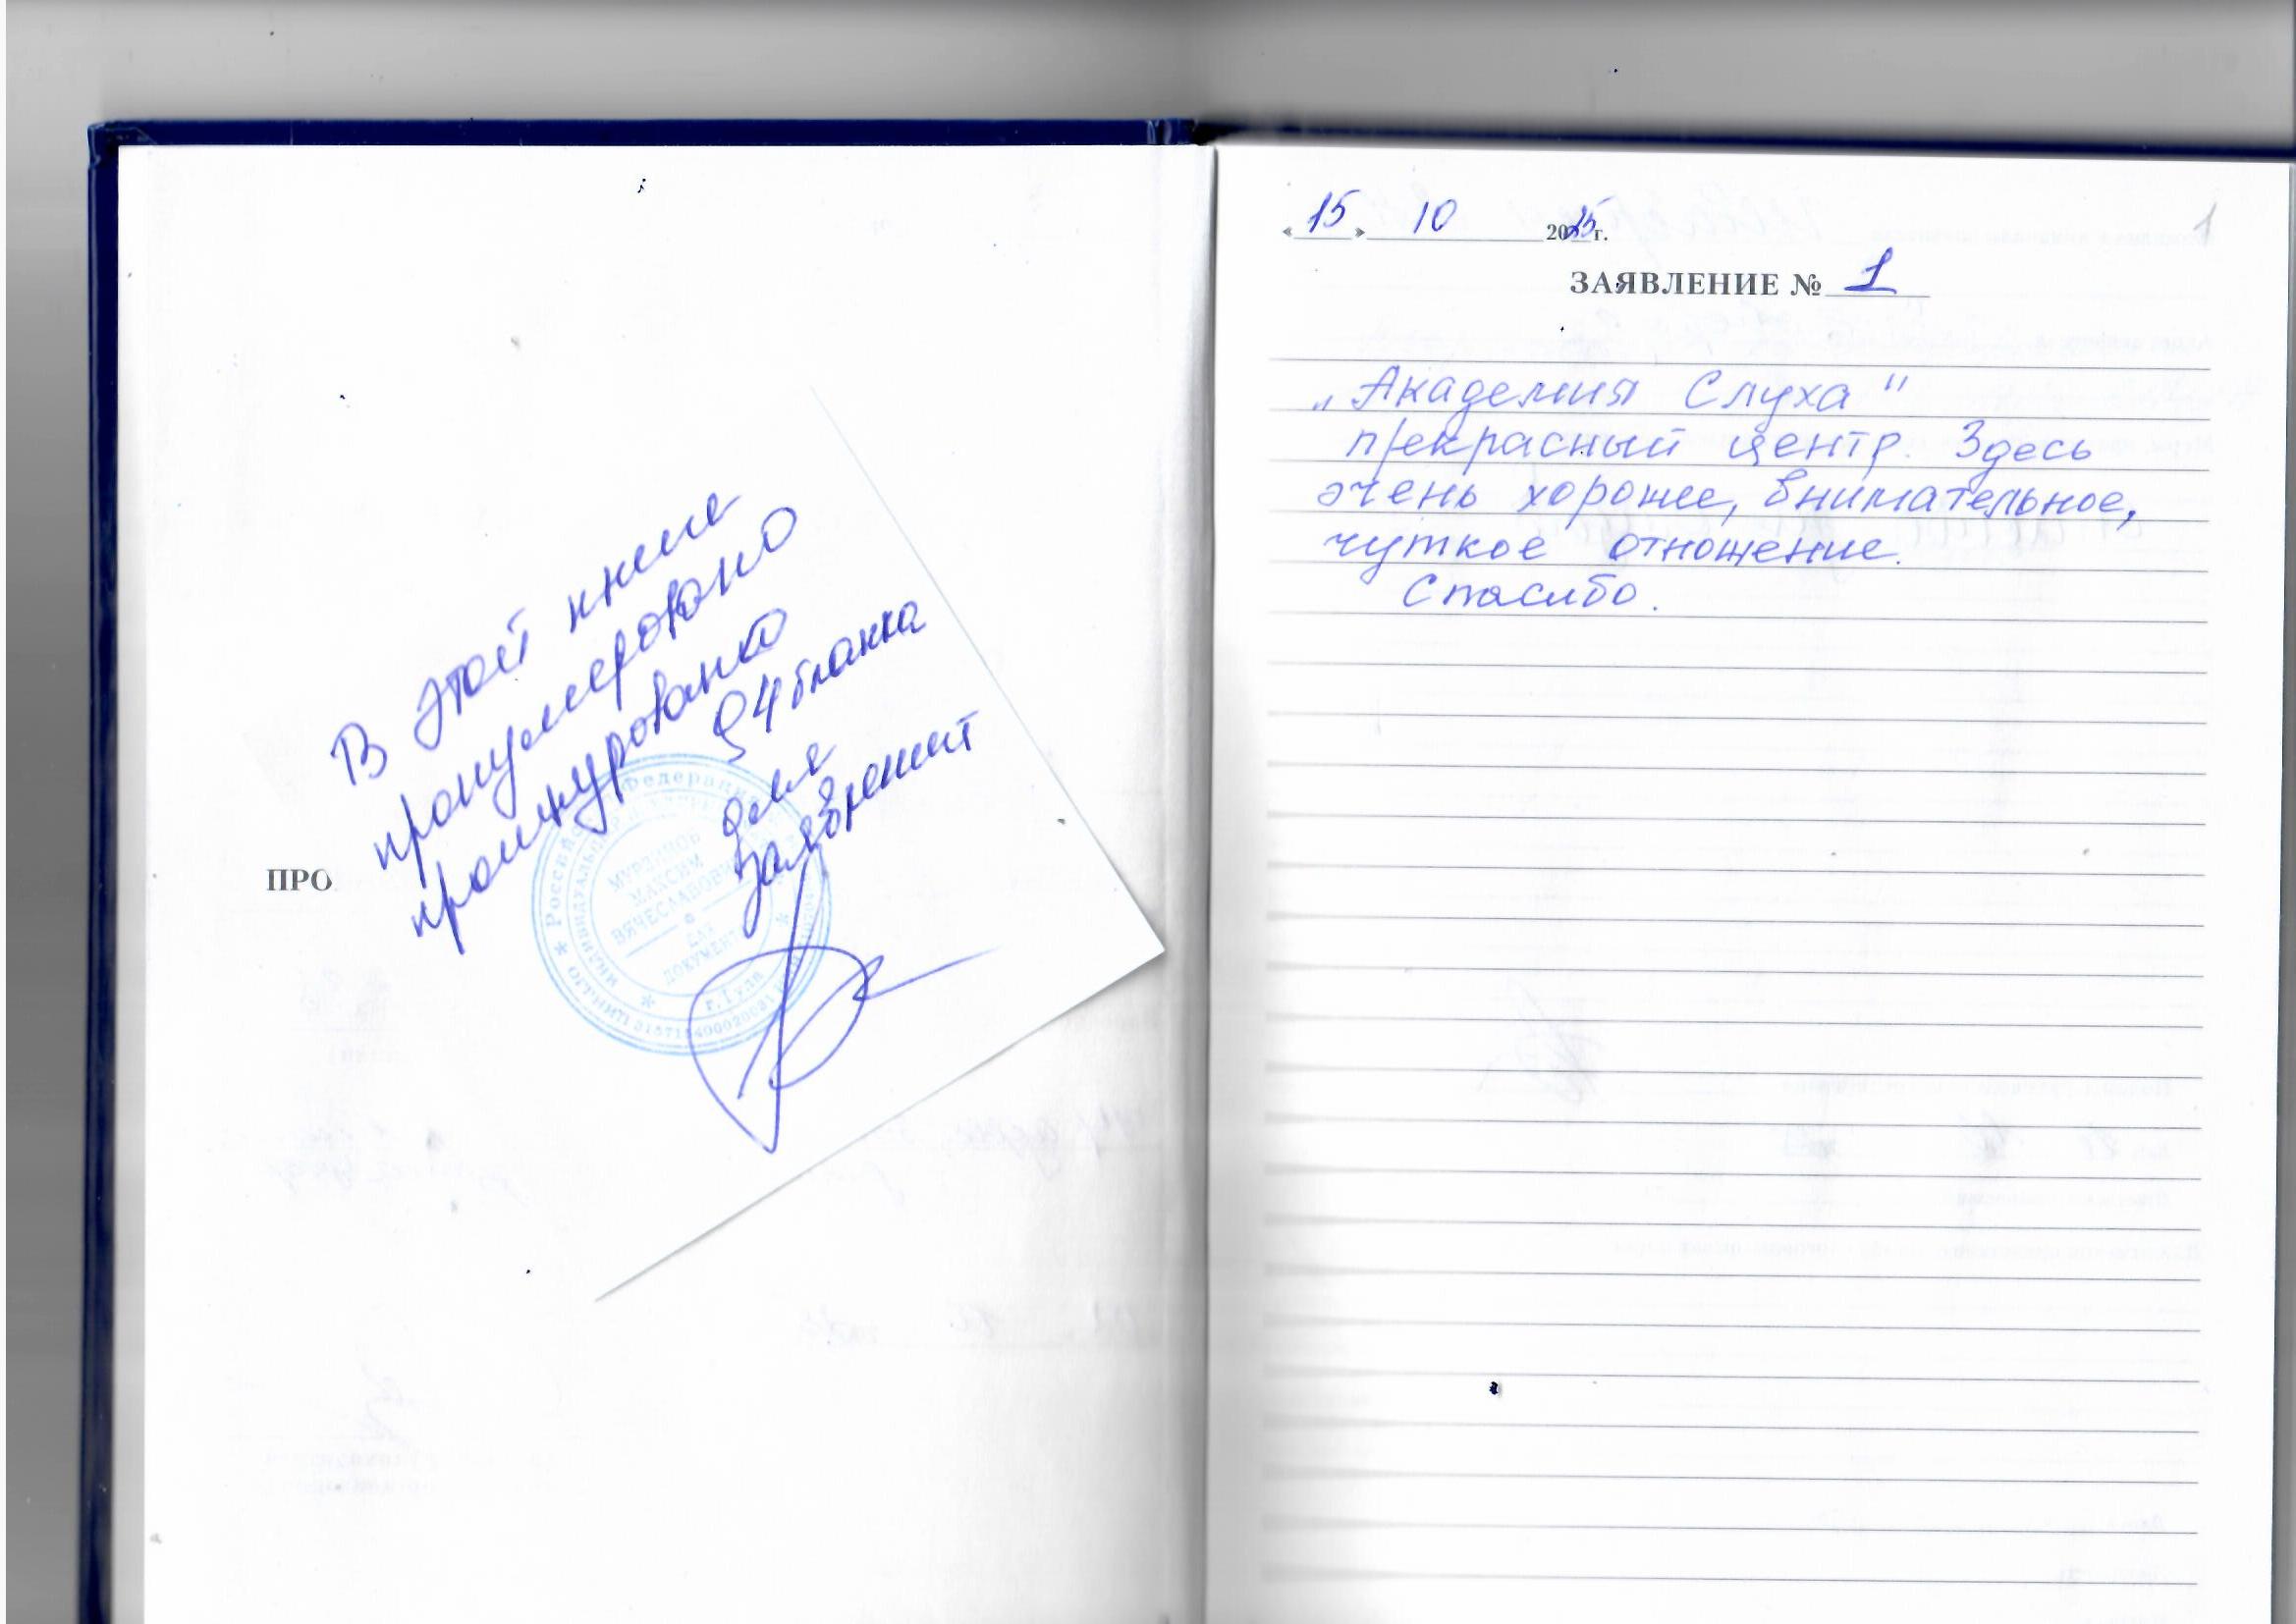 В этой книге
пронумеровано
прошнуровано
94 бланка
для
заявлений
ПРО
МУРЗИНОВ
МАКСИМ
ВЯЧЕСЛАВОВИЧ
ДЛЯ
ДОКУМЕНТОВ
г. Тула
«15» 10 2015 г.
1
ЗАЯВЛЕНИЕ № 1
„Академия Слуха"
прекрасный центр. Здесь
очень хорошее, внимательное,
чуткое отношение.
Спасибо.